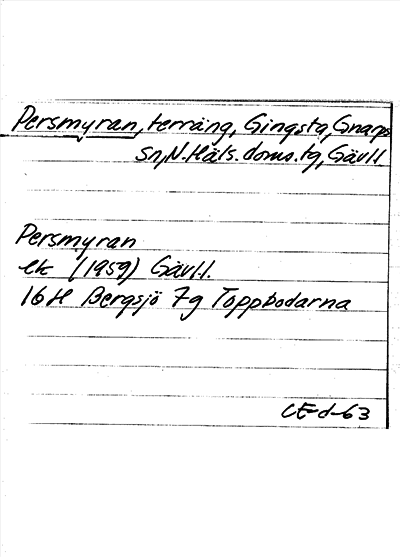 Persmyran, terräng, Gingsta, Gnarps
sn, N. Häls. doms. tg, Gävl l.
Persmyran
ek (1959) Gävl l.
16 H Bergsjö 7g Toppbodarna
CE-d-63